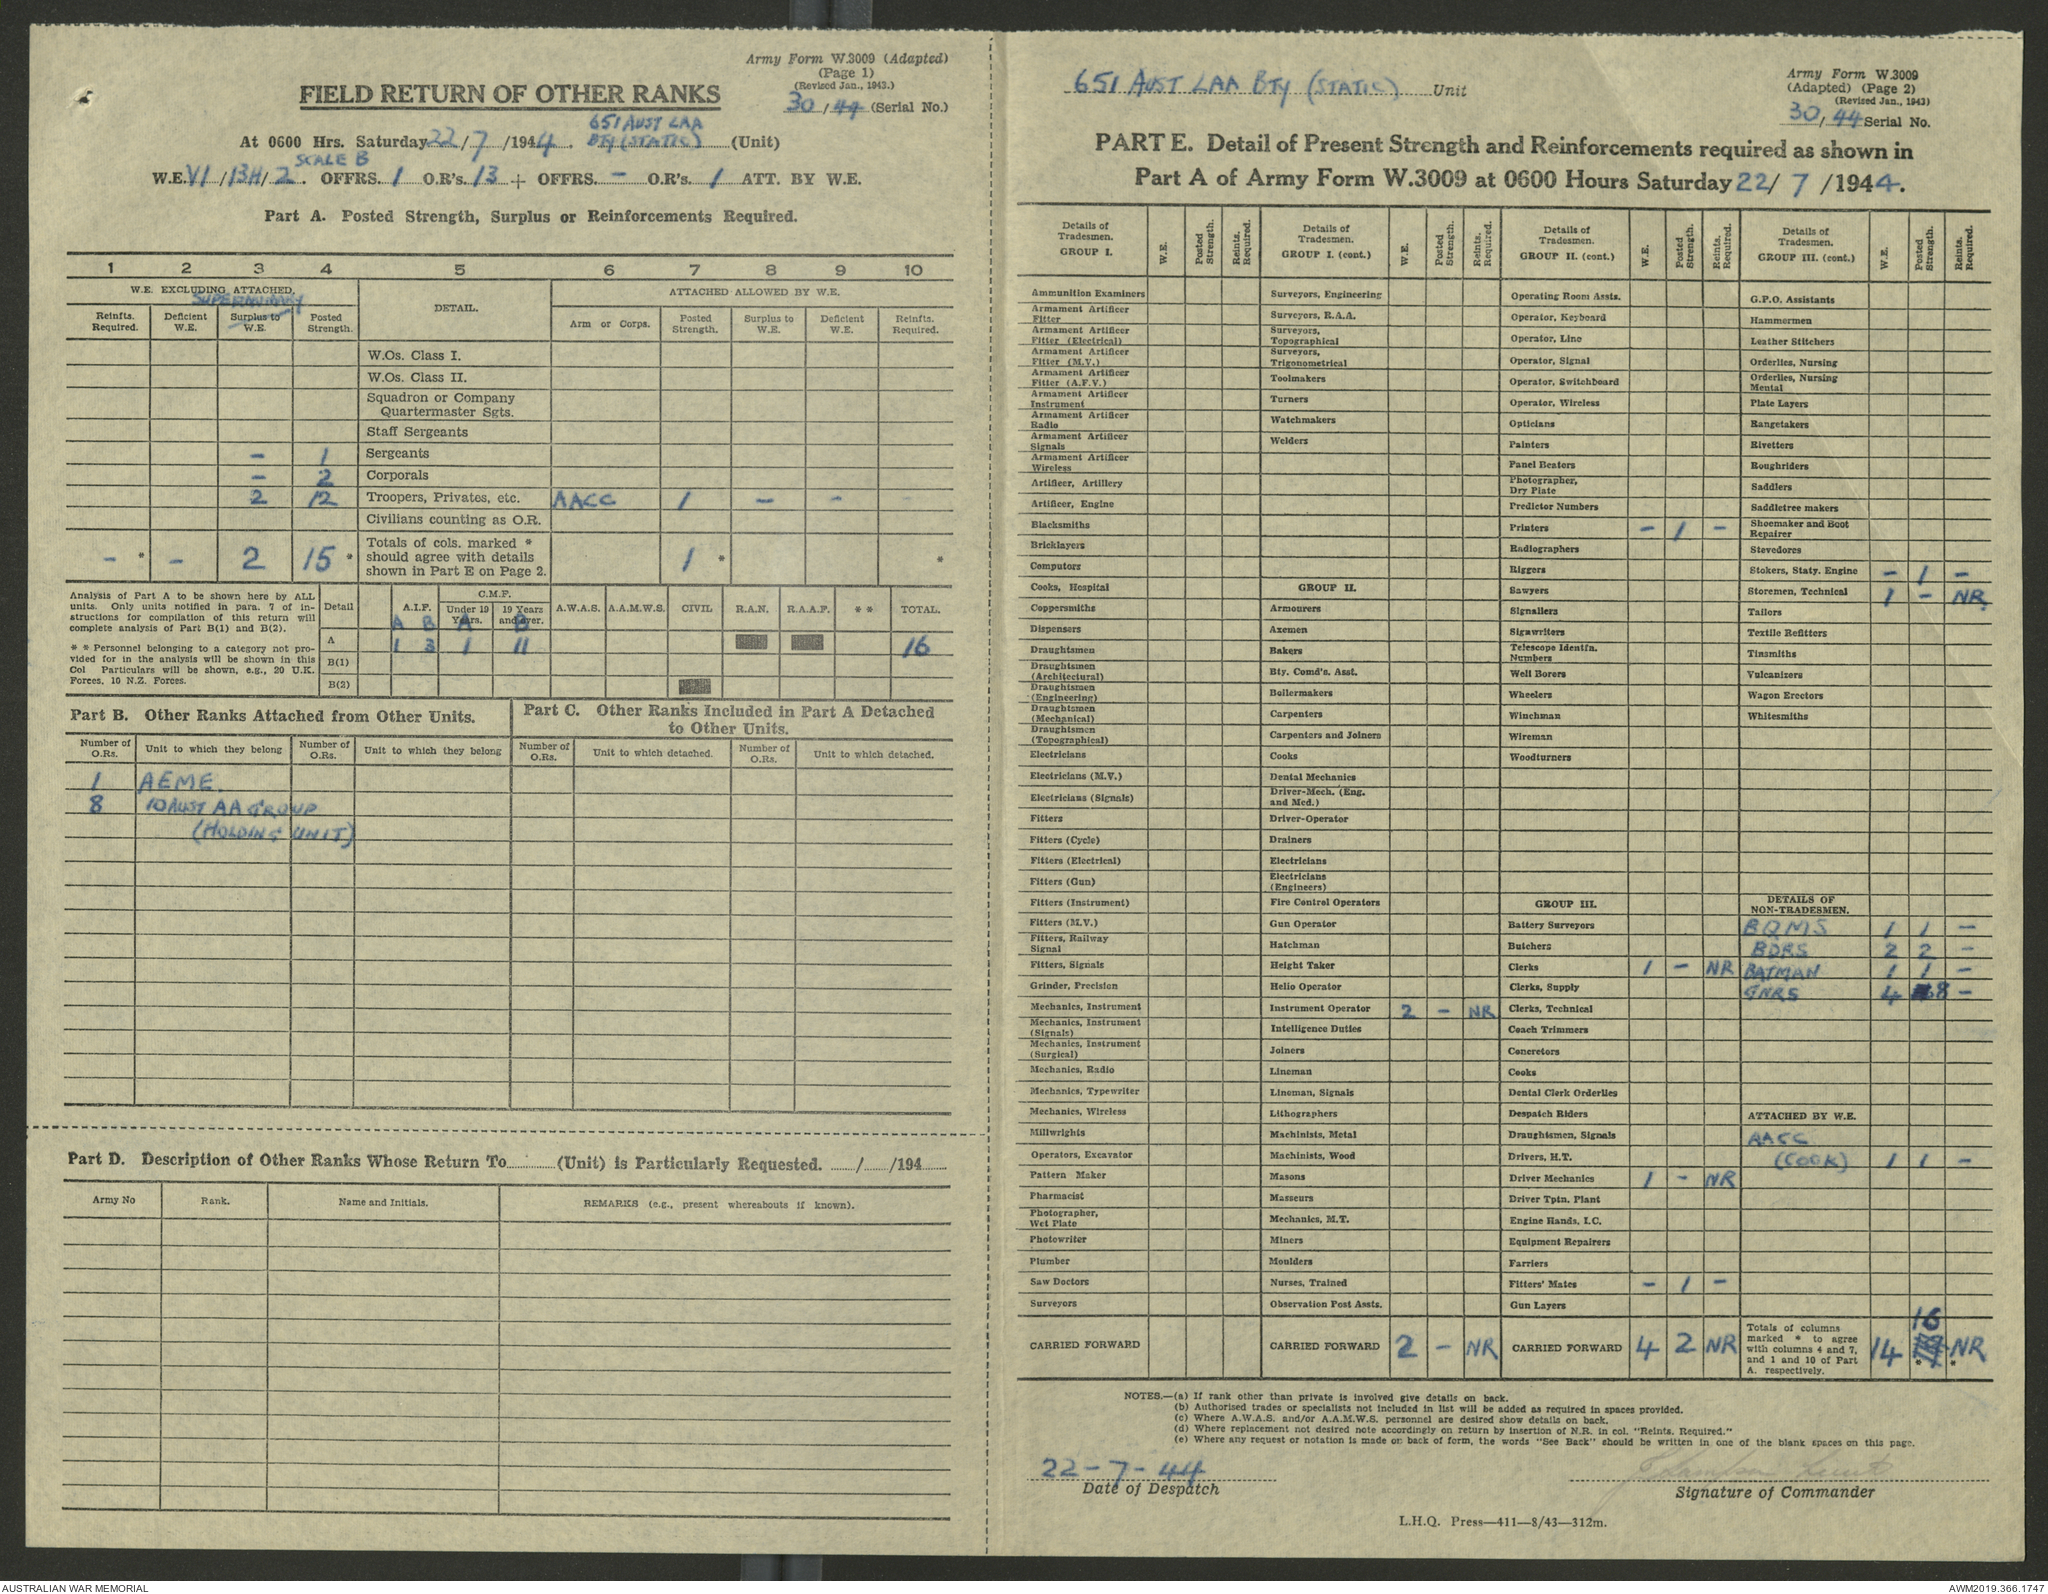 Army Form W.3009 (Adapted)
(Page 1)
(Revised Jan., 1943.)
30/44 (Serial No.)
FIELD RETURN OF OTHER RANKS
At 0600 Hrs. Saturday 22/7/1944. 651 AUST LAA
BTY (STATIC) (Unit)
SCALE B
W.E. VI/13H/2. OFFRS. 1 O.R's. 13 + OFFRS. – O.R's. 1 ATT. BY W.E.
Part A. Posted Strength, Surplus or Reinforcements Required.
1 2 3 4 5 6 7 8 9 10
W.E. EXCLUDING ATTACHED. DETAIL. ATTACHED ALLOWED BY W.E.
Reinfts. Required. Deficient W.E. Surplus to W.E. Posted Strength. Arm or Corps. Posted Strength. Surplus to W.E. Deficient W.E. Reinfts. Required.
W.Os. Class I.
W.Os. Class II.
Squadron or Company
Quartermaster Sgts.
Staff Sergeants
– 1 Sergeants
– 2 Corporals
2 12 Troopers, Privates, etc. AACC 1 – –
Civilians counting as O.R.
– * – 2 15 * Totals of cols. marked * should agree with details shown in Part E on Page 2. 1 * *
Analysis of Part A to be shown here by ALL
units. Only units notified in para. 7 of in-
structions for compilation of this return will
complete analysis of Part B(1) and B(2).
* * Personnel belonging to a category not pro-
vided for in the analysis will be shown in this
Col Particulars will be shown, e.g., 20 U.K.
Forces, 10 N.Z. Forces.
Detail A.I.F. C.M.F. Under 19 Years. 19 Years and over. A.W.A.S. A.A.M.W.S. CIVIL R.A.N. R.A.A.F. * * TOTAL.
A B A B
A 1 3 1 11 16
B(1)
B(2)
Part B. Other Ranks Attached from Other Units.
Number of O.Rs. Unit to which they belong Number of O.Rs. Unit to which they belong
1 AEME.
8 10 AUST AA GROUP
(HOLDING UNIT)
Part C. Other Ranks Included in Part A Detached
to Other Units.
Number of O.Rs. Unit to which detached. Number of O.Rs. Unit to which detached.
Part D. Description of Other Ranks Whose Return To (Unit) is Particularly Requested. / /194
Army No Rank. Name and Initials. REMARKS (e.g., present whereabouts if known).
651 AUST LAA BTY (STATIC) Unit
Army Form W.3009
(Adapted) (Page 2)
(Revised Jan., 1943)
30/44 Serial No.
PART E. Detail of Present Strength and Reinforcements required as shown in
Part A of Army Form W.3009 at 0600 Hours Saturday 22/7/1944.
Details of Tradesmen. GROUP I. W.E. Posted Strength. Reints. Required.
Ammunition Examiners
Armament Artificer Fitter
Armament Artificer Fitter (Electrical)
Armament Artificer Fitter (M.V.)
Armament Artificer Fitter (A.F.V.)
Armament Artificer Instrument
Armament Artificer Radio
Armament Artificer Signals
Armament Artificer Wireless
Artificer, Artillery
Artificer, Engine
Blacksmiths
Bricklayers
Computors
Cooks, Hospital
Coppersmiths
Dispensers
Draughtsmen
Draughtsmen (Architectural)
Draughtsmen (Engineering)
Draughtsmen (Mechanical)
Draughtsmen (Topographical)
Electricians
Electricians (M.V.)
Electricians (Signals)
Fitters
Fitters (Cycle)
Fitters (Electrical)
Fitters (Gun)
Fitters (Instrument)
Fitters (M.V.)
Fitters, Railway Signal
Fitters, Signals
Grinder, Precision
Mechanics, Instrument
Mechanics, Instrument (Signals)
Mechanics, Instrument (Surgical)
Mechanics, Radio
Mechanics, Typewriter
Mechanics, Wireless
Millwrights
Operators, Excavator
Pattern Maker
Pharmacist
Photographer, Wet Plate
Photowriter
Plumber
Saw Doctors
Surveyors
CARRIED FORWARD
Details of Tradesmen. GROUP I. (cont.) W.E. Posted Strength. Reints. Required.
Surveyors, Engineering
Surveyors, R.A.A.
Surveyors, Topographical
Surveyors, Trigonometrical
Toolmakers
Turners
Watchmakers
Welders
GROUP II.
Armourers
Axemen
Bakers
Bty. Comd's. Asst.
Boilermakers
Carpenters
Carpenters and Joiners
Cooks
Dental Mechanics
Driver-Mech. (Eng. and Med.)
Driver-Operator
Drainers
Electricians
Electricians (Engineers)
Fire Control Operators
Gun Operator
Hatchman
Height Taker
Helio Operator
Instrument Operator 2 – NR
Intelligence Duties
Joiners
Lineman
Lineman, Signals
Lithographers
Machinists, Metal
Machinists, Wood
Masons
Masseurs
Mechanics, M.T.
Miners
Moulders
Nurses, Trained
Observation Post Assts.
CARRIED FORWARD 2 – NR
Details of Tradesmen. GROUP II. (cont.) W.E. Posted Strength. Reints. Required.
Operating Room Assts.
Operator, Keyboard
Operator, Line
Operator, Signal
Operator, Switchboard
Operator, Wireless
Opticians
Painters
Panel Beaters
Photographer, Dry Plate
Predictor Numbers
Printers – 1 –
Radiographers
Riggers
Sawyers
Signallers
Signwriters
Telescope Identfn. Numbers
Well Borers
Wheelers
Winchman
Wireman
Woodturners
GROUP III.
Battery Surveyors
Butchers
Clerks 1 – NR
Clerks, Supply
Clerks, Technical
Coach Trimmers
Concretors
Cooks
Dental Clerk Orderlies
Despatch Riders
Draughtsmen, Signals
Drivers, H.T.
Driver Mechanics 1 – NR
Driver Tptn. Plant
Engine Hands, I.C.
Equipment Repairers
Farriers
Fitters' Mates – 1 –
Gun Layers
CARRIED FORWARD 4 2 NR
Details of Tradesmen. GROUP III. (cont.) W.E. Posted Strength. Reints. Required.
G.P.O. Assistants
Hammermen
Leather Stitchers
Orderlies, Nursing
Orderlies, Nursing Mental
Plate Layers
Rangetakers
Rivetters
Roughriders
Saddlers
Saddletree makers
Shoemaker and Boot Repairer
Stevedores
Stokers, Staty. Engine – 1 –
Storemen, Technical 1 – NR
Tailors
Textile Refitters
Tinsmiths
Vulcanizers
Wagon Erectors
Whitesmiths
DETAILS OF NON-TRADESMEN.
BQMS 1 1 –
BDRS 2 2 –
BATMAN 1 1 –
GNRS 4 8 –
ATTACHED BY W.E.
AACC
(COOK) 1 1 –
Totals of columns marked * to agree with columns 4 and 7, and 1 and 10 of Part A. respectively. 14 16 * NR *
NOTES.—(a) If rank other than private is involved give details on back.
(b) Authorised trades or specialists not included in list will be added as required in spaces provided.
(c) Where A.W.A.S. and/or A.A.M.W.S. personnel are desired show details on back.
(d) Where replacement not desired note accordingly on return by insertion of N.R. in col. "Reints. Required."
(e) Where any request or notation is made on back of form, the words "See Back" should be written in one of the blank spaces on this page.
22-7-44
Date of Despatch
Signature of Commander
L.H.Q. Press—411—8/43—312m.
AUSTRALIAN WAR MEMORIAL
AWM2019.366.1747